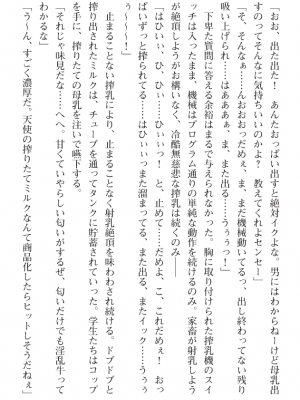 「おお、出た出た！　あんたおっぱい出すと絶対イクよな。男にはわからねーけど母乳出
すのってそんなに気持ちいいのか？　教えてくれよセンセー」
「そ、そんなぁ……おおおっだめぇ、ま、まだ機械動いてるっ、出し終わってない残り
吸い上げられ……はぁぁぁぁ、ま、また出る……うぅぅっ！」
　下卑た質問に答える余裕はまるで与えられなかった。胸に取り付けられた搾乳機のスイ
ッチは入ったまま、機械はプログラム通りの単純な動作を続けるのみ。家畜が射乳しよう
が絶頂しようがお構いなく、冷酷無慈悲な搾乳は続くのみ――
「はひぃい、ひ、ひぃ……ひぃいっ！　と、止めて……だめよ、こ、これだめぇ！　おっ
ぱいずっと搾られてる……はひぃいっまた溜まってる、また出る、またイっク……うぅぅ
ぅ～～！」
　止まることない搾乳により、止まることなく射乳絶頂を味わわされていた。ドブドブと
搾り出されたミルクは、チューブを通ってタンクに貯蓄されていった。学生たちはコップ
を手に、搾りたての母乳を注いで嚥下する。
「それじゃ味見だな……へへっ。甘くていやらしい匂いがするぜ、匂いだけでも淫乱牛って
わかるな」
「うーん、すごく濃厚だ。天使の搾りたてミルクなんて商品化したらヒットしそうだねぇ」